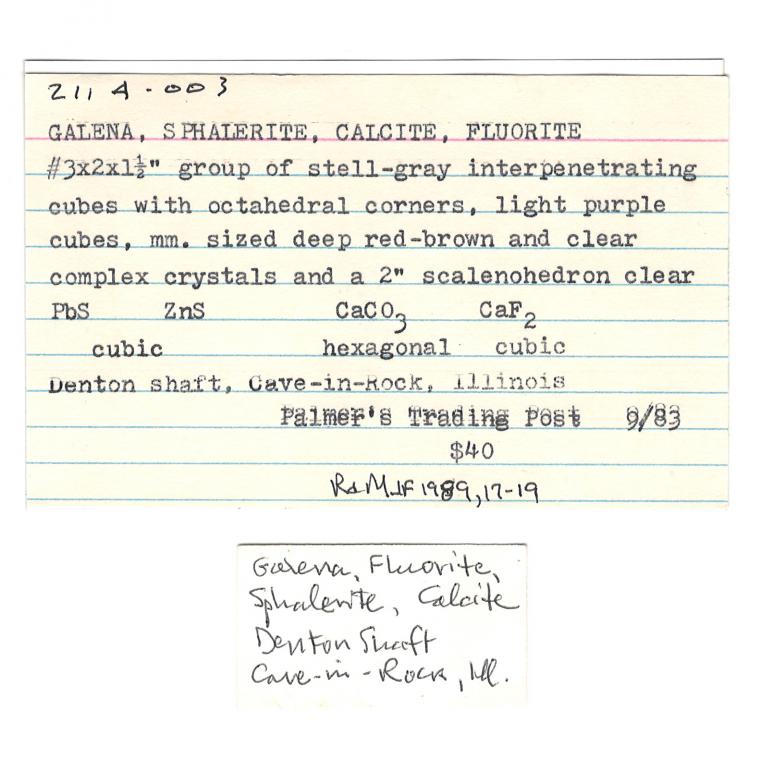 211A-003
GALENA, SPHALERITE, CALCITE, FLUORITE
#3x2x1½" group of stell-gray interpenetrating
cubes with octahedral corners, light purple
cubes, mm. sized deep red-brown and clear
complex crystals and a 2" scalenohedron clear
PbS ZnS CaCO3 CaF2
cubic hexagonal cubic
Denton shaft, Cave-in-Rock, Illinois
Palmer's Trading Post 9/83
$40
R&M JF 1989, 17-19
Galena, Fluorite,
Sphalerite, Calcite
Denton Shaft
Cave-in-Rock, Ill.